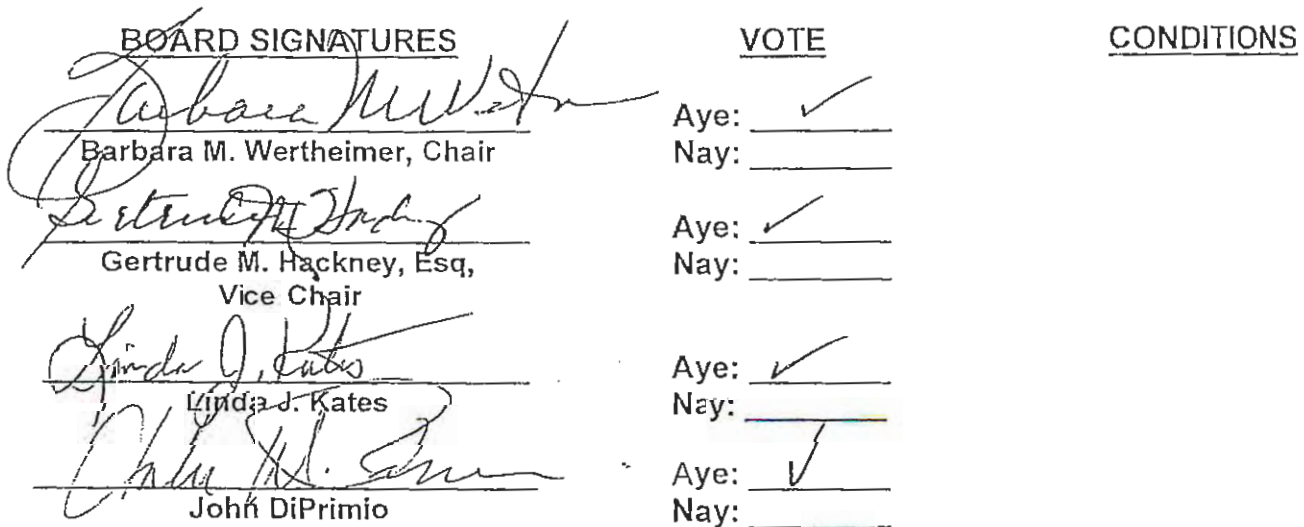 BOARD SIGNATURES VOTE CONDITIONS
Barbara M. Wertheimer, Chair
Aye: ✓
Nay:
Gertrude M. Hackney, Esq,
Vice Chair
Aye: ✓
Nay:
Linda J. Kates
Linda J. Kates
Aye: ✓
Nay:
John DiPrimio
Aye: ✓
Nay: